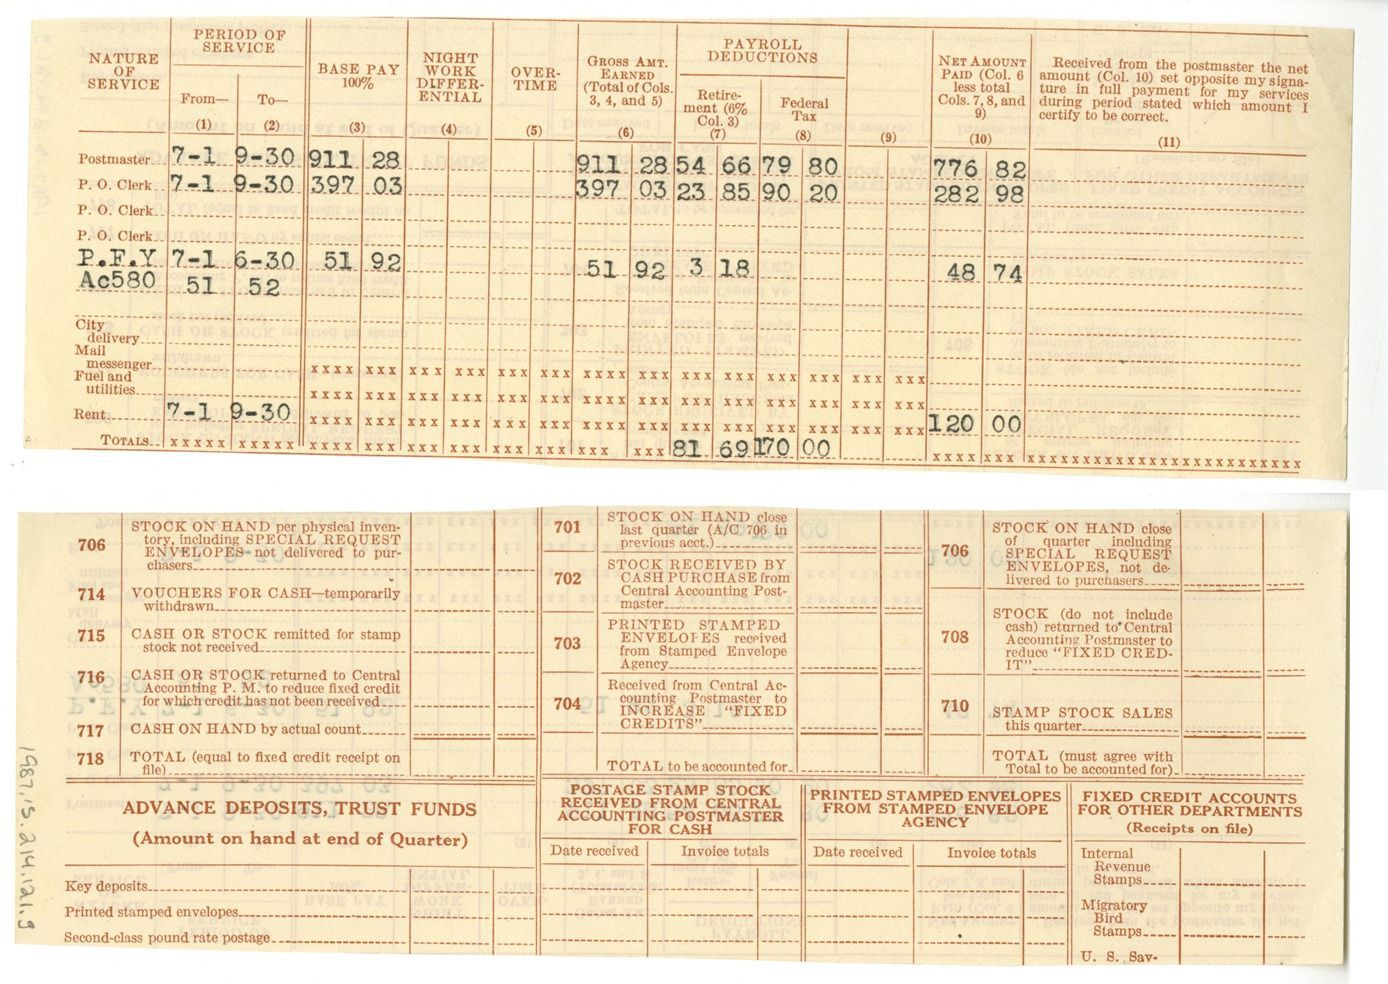 NATURE OF SERVICE
PERIOD OF SERVICE
From—
(1)
To—
(2)
BASE PAY 100%
(3)
NIGHT WORK DIFFER-ENTIAL
(4)
OVER-TIME
(5)
GROSS AMT. EARNED (Total of Cols. 3, 4, and 5)
(6)
PAYROLL DEDUCTIONS
Retire-ment (6% Col. 3)
(7)
Federal Tax
(8)
(9)
NET AMOUNT PAID (Col. 6 less total Cols. 7, 8, and 9)
(10)
Received from the postmaster the net amount (Col. 10) set opposite my signa-ture in full payment for my services during period stated which amount I certify to be correct.
(11)
Postmaster 7-1 9-30 911 28 911 28 54 66 79 80 776 82
P. O. Clerk 7-1 9-30 397 03 397 03 23 85 90 20 282 98
P. O. Clerk
P. O. Clerk
P.F.Y 7-1 6-30 51 92 51 92 3 18 48 74
Ac580 51 52
City delivery
Mail messenger xxxx xxx xxx xxx xxx xxx xxxx xxx xxx xxx xxx xxx xxx xxx
Fuel and utilities xxxx xxx xxx xxx xxx xxx xxxx xxx xxx xxx xxx xxx xxx xxx
Rent 7-1 9-30 xxxx xxx xxx xxx xxx xxx xxxx xxx xxx xxx xxx xxx xxx xxx 120 00
TOTALS xxxxx xxxxx xxxx xxx xxx xxx xxx xxx xxx xxx 81 69 170 00 xxxx xxx xxxxxxxxxxxxxxxxxxxxxxxxxx
706 STOCK ON HAND per physical inven-
tory, including SPECIAL REQUEST
ENVELOPES not delivered to pur-
chasers
714 VOUCHERS FOR CASH—temporarily
withdrawn
715 CASH OR STOCK remitted for stamp
stock not received
716 CASH OR STOCK returned to Central
Accounting P. M. to reduce fixed credit
for which credit has not been received
717 CASH ON HAND by actual count
718 TOTAL (equal to fixed credit receipt on
file)
701 STOCK ON HAND close
last quarter (A/C 706 in
previous acct.)
702 STOCK RECEIVED BY
CASH PURCHASE from
Central Accounting Post-
master
703 PRINTED STAMPED
ENVELOPES received
from Stamped Envelope
Agency
704 Received from Central Ac-
counting Postmaster to
INCREASE "FIXED
CREDITS"
TOTAL to be accounted for
706 STOCK ON HAND close
of quarter including
SPECIAL REQUEST
ENVELOPES, not de-
livered to purchasers
708 STOCK (do not include
cash) returned to Central
Accounting Postmaster to
reduce "FIXED CRED-
IT"
710 STAMP STOCK SALES
this quarter
TOTAL (must agree with
Total to be accounted for)
ADVANCE DEPOSITS, TRUST FUNDS
(Amount on hand at end of Quarter)
Key deposits
Printed stamped envelopes
Second-class pound rate postage
POSTAGE STAMP STOCK
RECEIVED FROM CENTRAL
ACCOUNTING POSTMASTER
FOR CASH
Date received Invoice totals
PRINTED STAMPED ENVELOPES
FROM STAMPED ENVELOPE
AGENCY
Date received Invoice totals
FIXED CREDIT ACCOUNTS
FOR OTHER DEPARTMENTS
(Receipts on file)
Internal
Revenue
Stamps
Migratory
Bird
Stamps
U. S. Sav-
1987.15.214.121.9